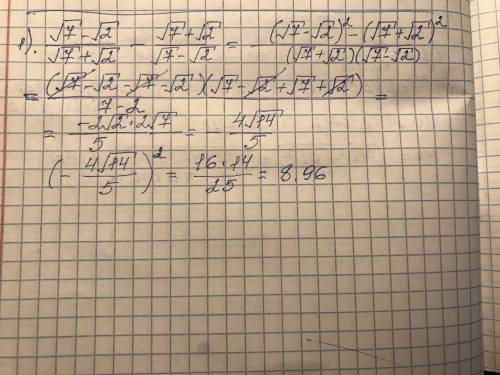 1). (√7-√2)/(√7+√2) - (√7+√2)/(√7-√2) = ((√7-√2)² - (√7+√2)²)/((√7+√2)(√7-√2))
= ((√7-√2-√7-√2)(√7-√2+√7+√2))/(7-2) =
= (-2√2·2√7)/5 = - 4√14/5
(- 4√14/5)² = 16·14/25 = 8.96